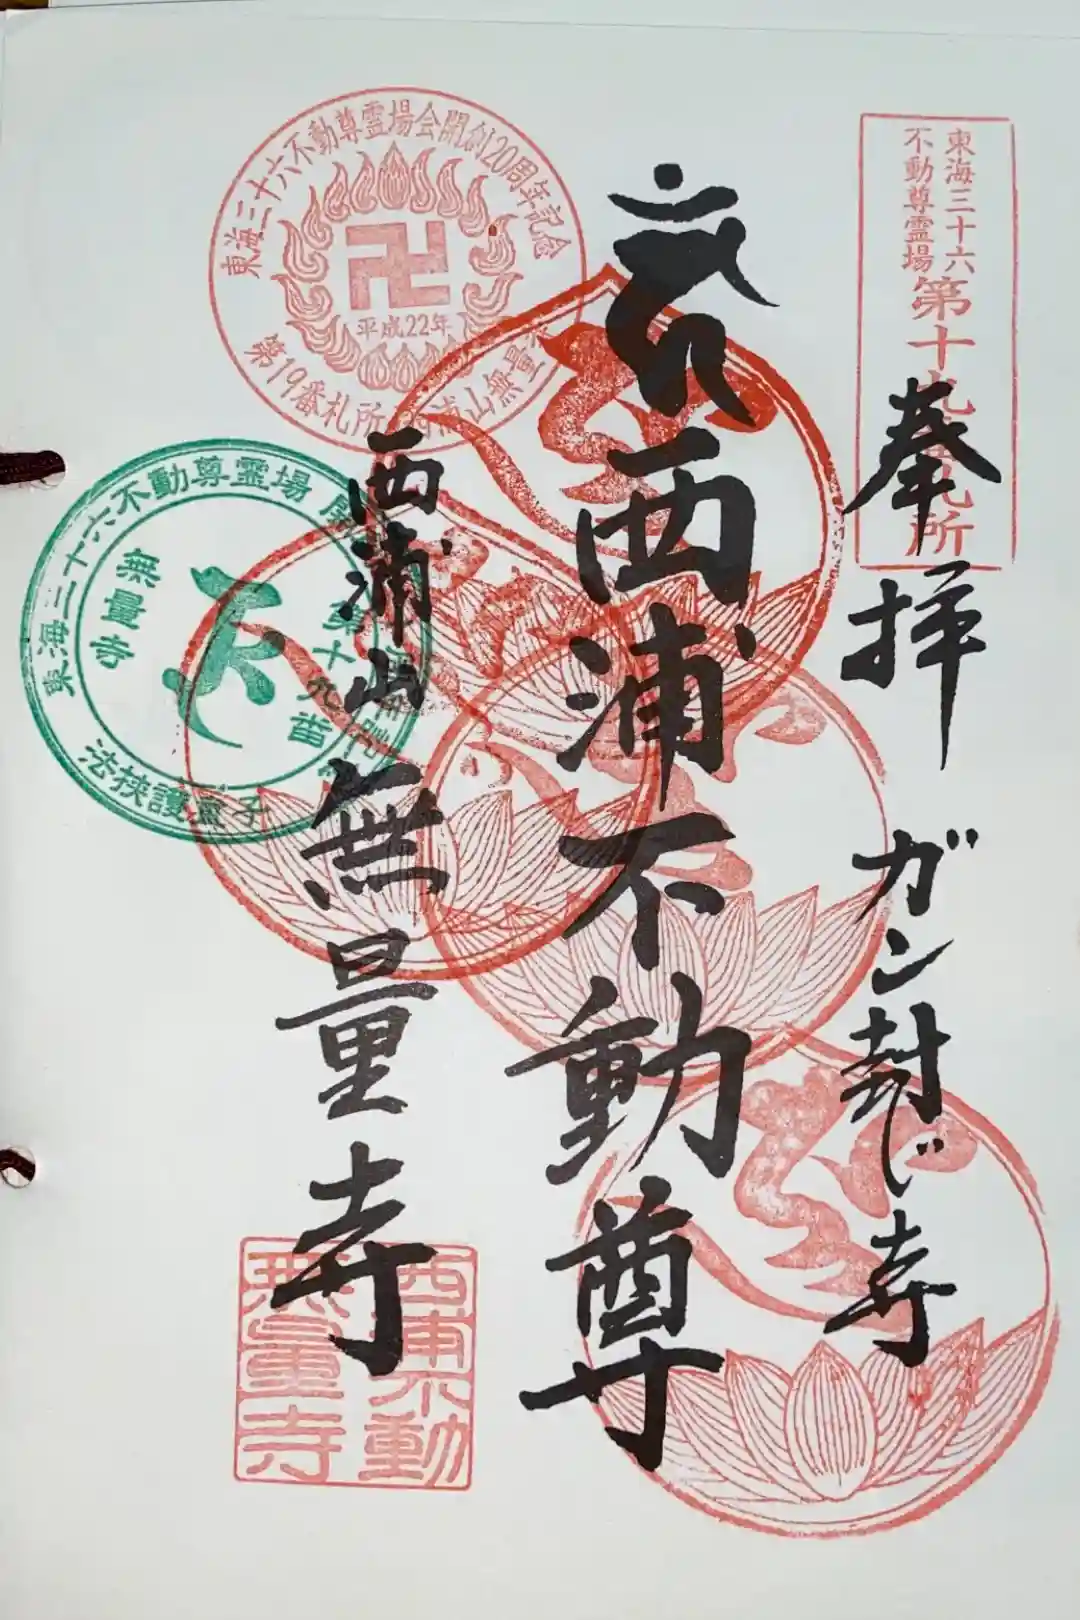 東海三十六
不動尊霊場
第十九番札所
奉拝
ガン封じ寺
西浦不動尊
西浦山
無量寺
東海三十六不動尊霊場会開創20周年記念
平成22年
第19番札所 西浦山無量
東海三十六不動尊霊場
無量寺
第十九番
西浦不動
無量寺